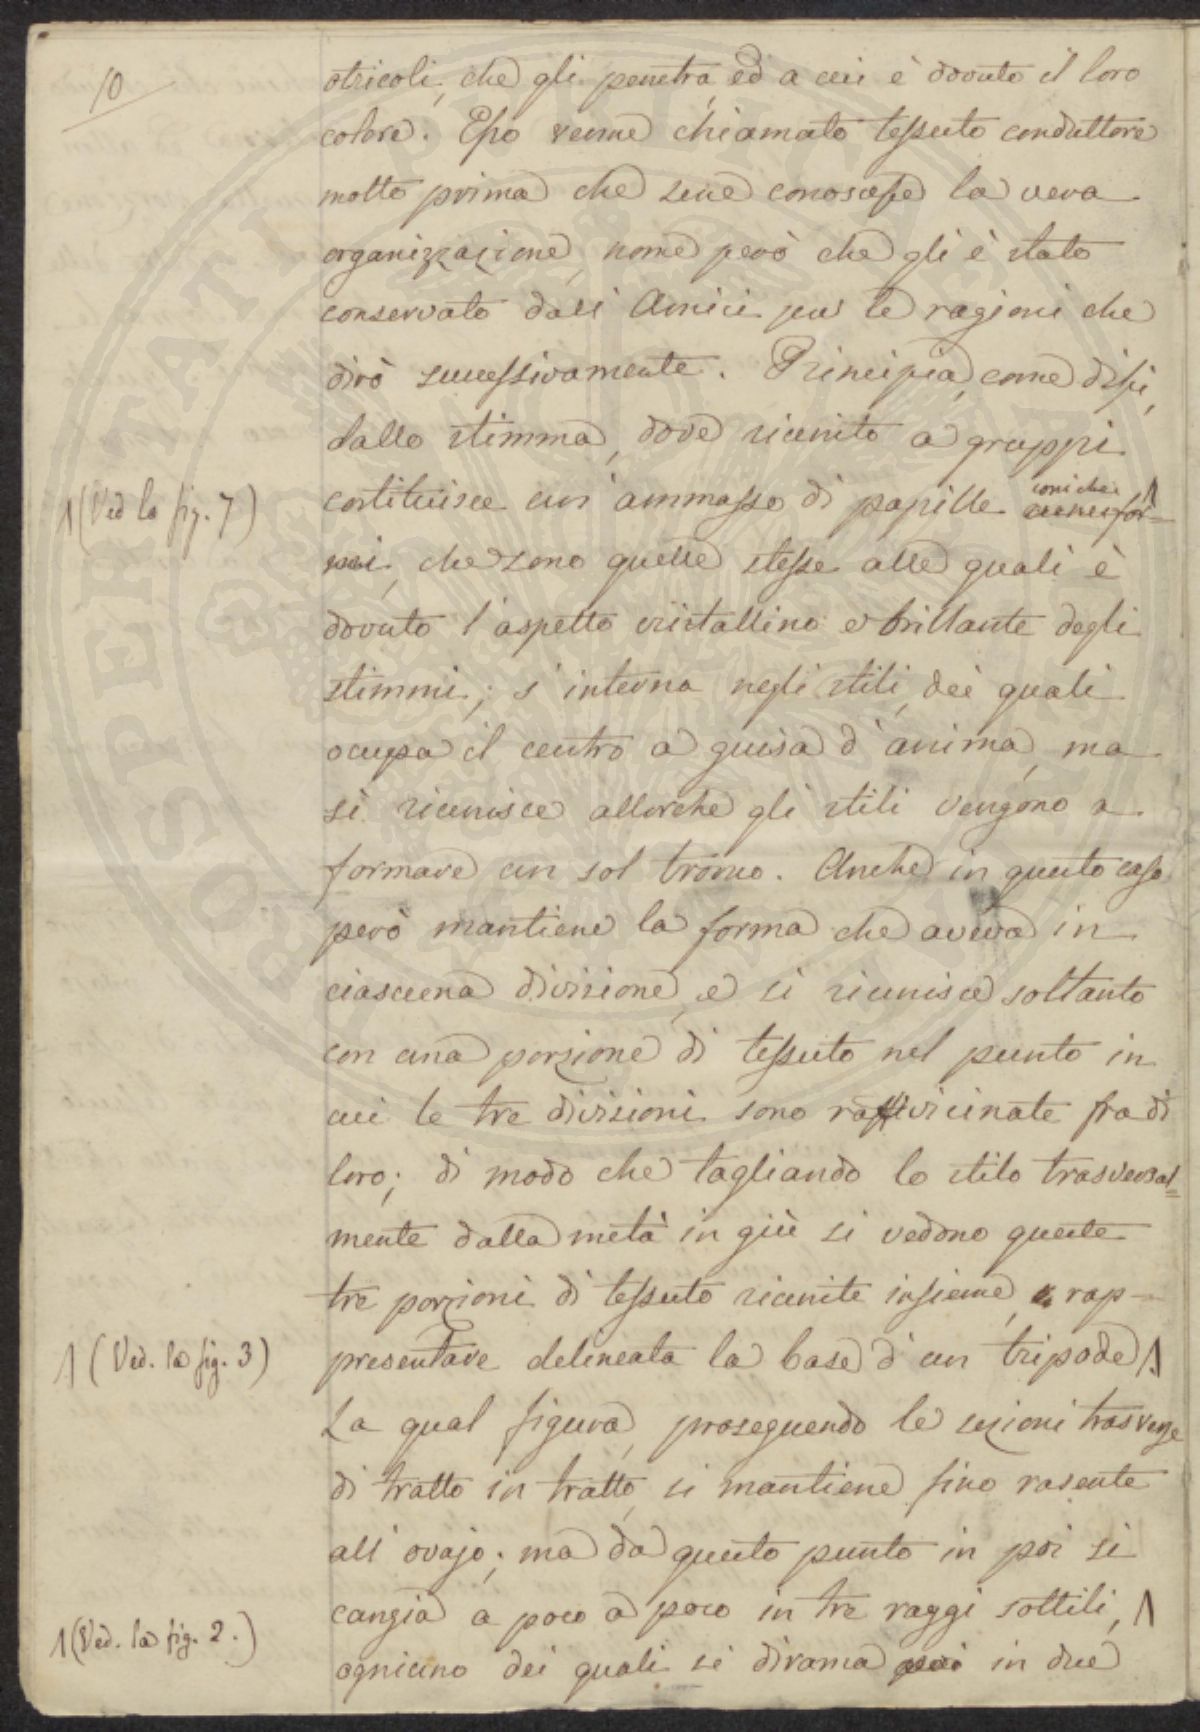 10
otricoli, che gli penetra, ed a cui è dovuto il loro
colore. Esso venne chiamato tessuto conduttore
molto prima che sene conoscesse la vera
organizzazione, nome però che gli è stato
conservato dall' Amici per le ragioni che
dirò successivamente. Principia, come dissi,
dallo stimma, dove riunito a gruppi
costituisce un' ammasso di papille coniche /\
cuneifor=
/\ (Ved la fig. 7)
mi, che sono quelle stesse alle quali è
dovuto l'aspetto cristallino e brillante degli
stimmi; s' interna negli stili, dei quali
ocupa il centro a guisa d' anima, ma
si riunisce allorchè gli stili vengono a
formare un sol tronco. Anche in questo caso
però mantiene la forma che aveva in
ciascuna divisione, e si riunisce soltanto
con una porzione di tessuto nel punto in
cui le tre divisioni sono ravvicinate fra di
loro; di modo che tagliando lo stilo trasversal=
mente dalla metà in giù si vedono queste
tre porzioni di tessuto riunite insieme, rap-
presentare delineata la base d' un tripode /\.
/\ (Ved. la fig. 3)
La qual figura, proseguendo le sezioni trasverse
di tratto in tratto, si mantiene fino rasente
all' ovajo; ma da questo punto in poi si
cangia a poco a poco in tre raggi sottili, /\
/\ (Ved. la fig. 2.)
ogniuno dei quali si dirama poi in due
PROSPERITATI PUBLICAE